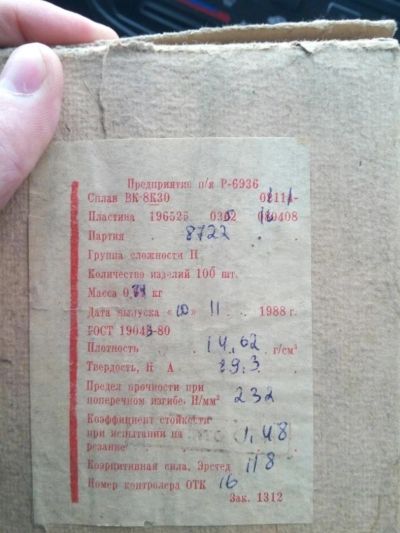 Предприятие п/я Р-6936
Сплав ВК-8К30 02114-
Пластина 196525 0302 080408
Партия 8722
Группа сложности II
Количество изделий 100 шт.
Масса кг
Дата выпуска « 11 1988 г.
ГОСТ 19043-80
Плотность 14,62 г/см³
Твердость, Н А 89.3
Предел прочности при
поперечном изгибе, Н/мм² 232
Коэффициент стойкости
при испытании на 1,48
резание
Коэрцитивная сила, Эрстед 118
Номер контролера ОТК 16
Зак. 1312